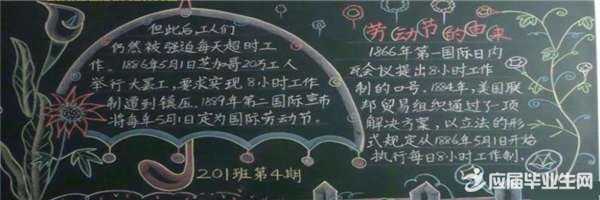 但此后工人们
仍然被强迫每天超时工
作。1886年5月1日芝加哥20万工人
举行大罢工,要求实现8小时工作
制遭到镇压。1889年第二国际宣布
将每年5月1日定为国际劳动节。
201班第4期
劳动节的由来
1866年第一国际日内
瓦会议提出8小时工作
制的口号。1884年,美国联
邦贸易组织通过了一项
解决方案,以立法的形
式规定从1886年5月1日开始
执行每日8小时工作制.
应届毕业生网